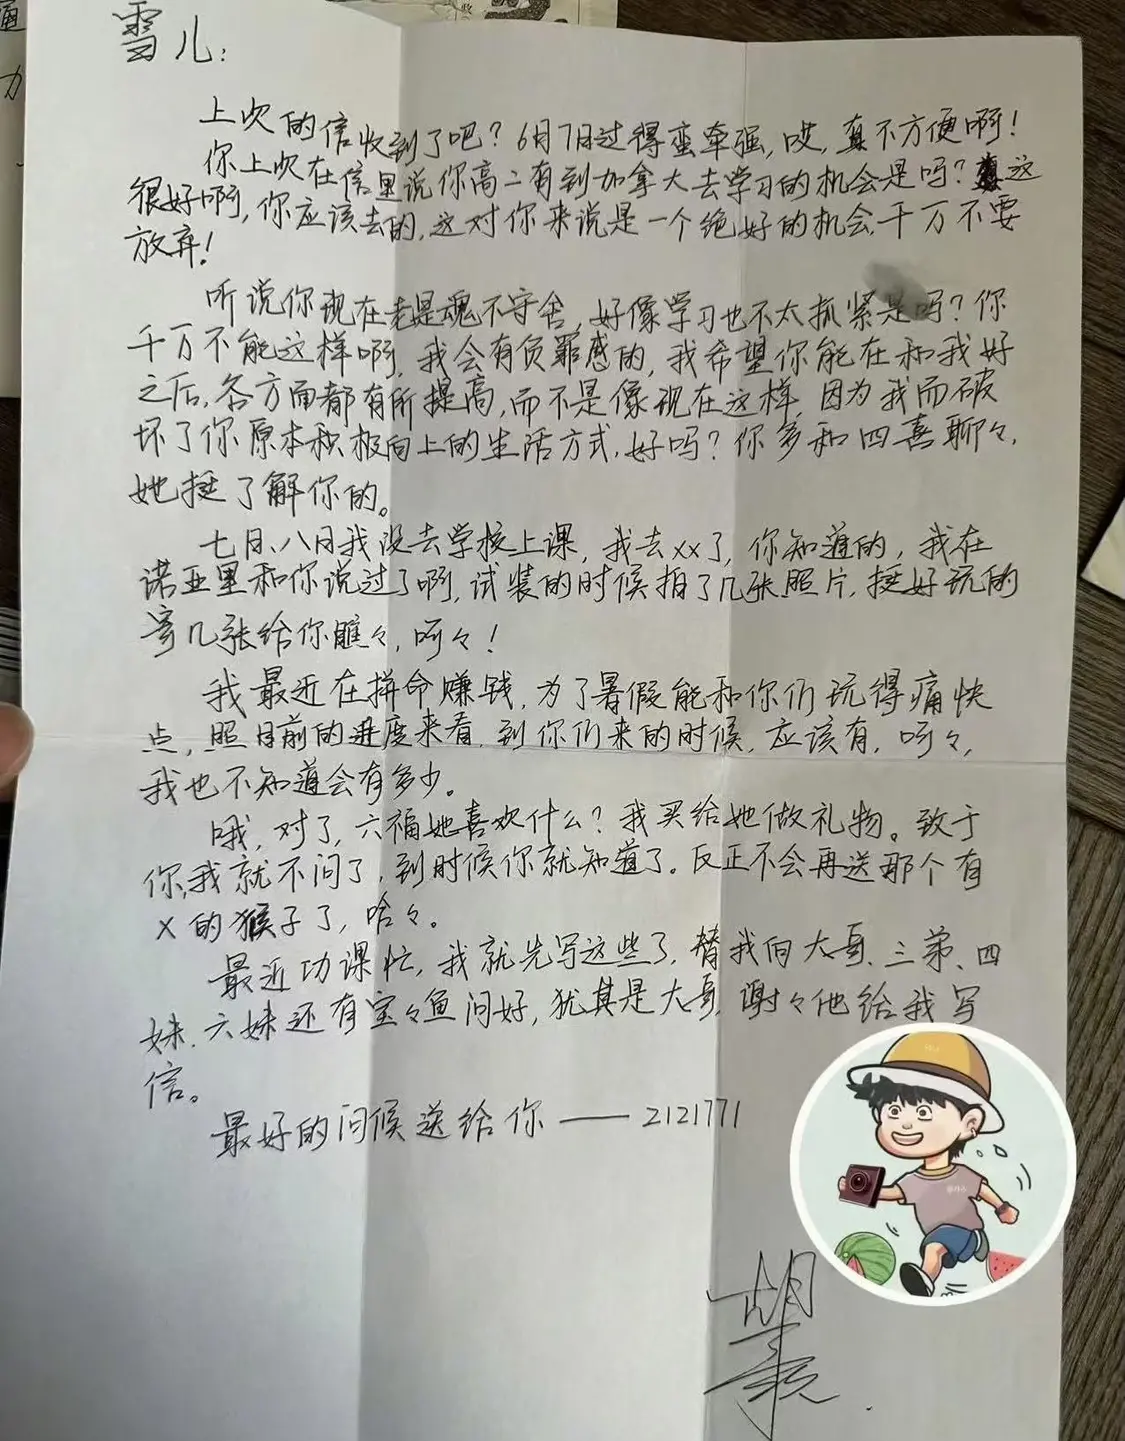 雪儿:
上次的信收到了吧？6月7日过得蛮牵强,哎,真不方便啊！
你上次在信里说你高二有到加拿大去学习的机会是吗？这
很好啊,你应该去的,这对你来说是一个绝好的机会,千万不要
放弃！
听说你现在老是魂不守舍,好像学习也不太抓紧是吗？你
千万不能这样啊,我会有负罪感的,我希望你能在和我好
之后,各方面都有所提高,而不是像现在这样,因为我而破
坏了你原本积极向上的生活方式,好吗？你多和四喜聊々,
她挺了解你的。
七月、八月我没去学校上课,我去xx了,你知道的,我在
诺亚里和你说过了啊,试装的时候拍了几张照片,挺好玩的
寄几张给你瞧々,呵々！
我最近在拼命赚钱,为了暑假能和你们玩得痛快
点,照目前的进度来看,到你们来的时候,应该有,呵々,
我也不知道会有多少。
哦,对了,六福她喜欢什么？我买给她做礼物。致于
你,我就不问了,到时候你就知道了。反正不会再送那个有
x的猴子了,哈々。
最近功课忙,我就先写这些了,替我向大哥、三弟、四
妹、六妹还有宝々鱼问好,犹其是大哥,谢々他给我写
信。
最好的问候送给你——2121771
胡